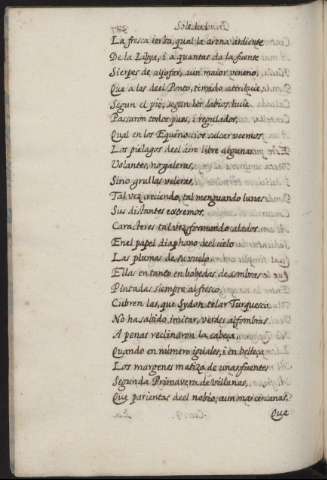 La fresca ierba, qual la arena ardiente
De la Libya, i a quantas da la fuente
Sierpes de aljofar, aun maior veneno,
Que a las del Ponto, timido atribuie,
Segun el pie, segun los labios huie.
Passaron todos pues, i regulados,
Qual en los Equinoccios sulcar vemos
Los pielagos del aire libre algunas
Volantes no galeras,
Sino grullas veleras,
Tal vez creciendo, tal menguando lunas
Sus distantes extremos,
Caracteres tal vez formando alados
En el papel diaphano del cielo
Las plumas de su vuelo.
Ellas en tanto en bobedas de sombras
Pintadas siempre al fresco,
Cubren las, que Sydon telar Turquesco
No ha sabido imitar, verdes alfombras.
A penas reclinaron la cabeça,
Quando en numero iguales, i en belleça
Los margenes matiza de unas fuentes
Segunda Primavera de villanas,
Que parientas del nobio, aun mas cercanas,
Que